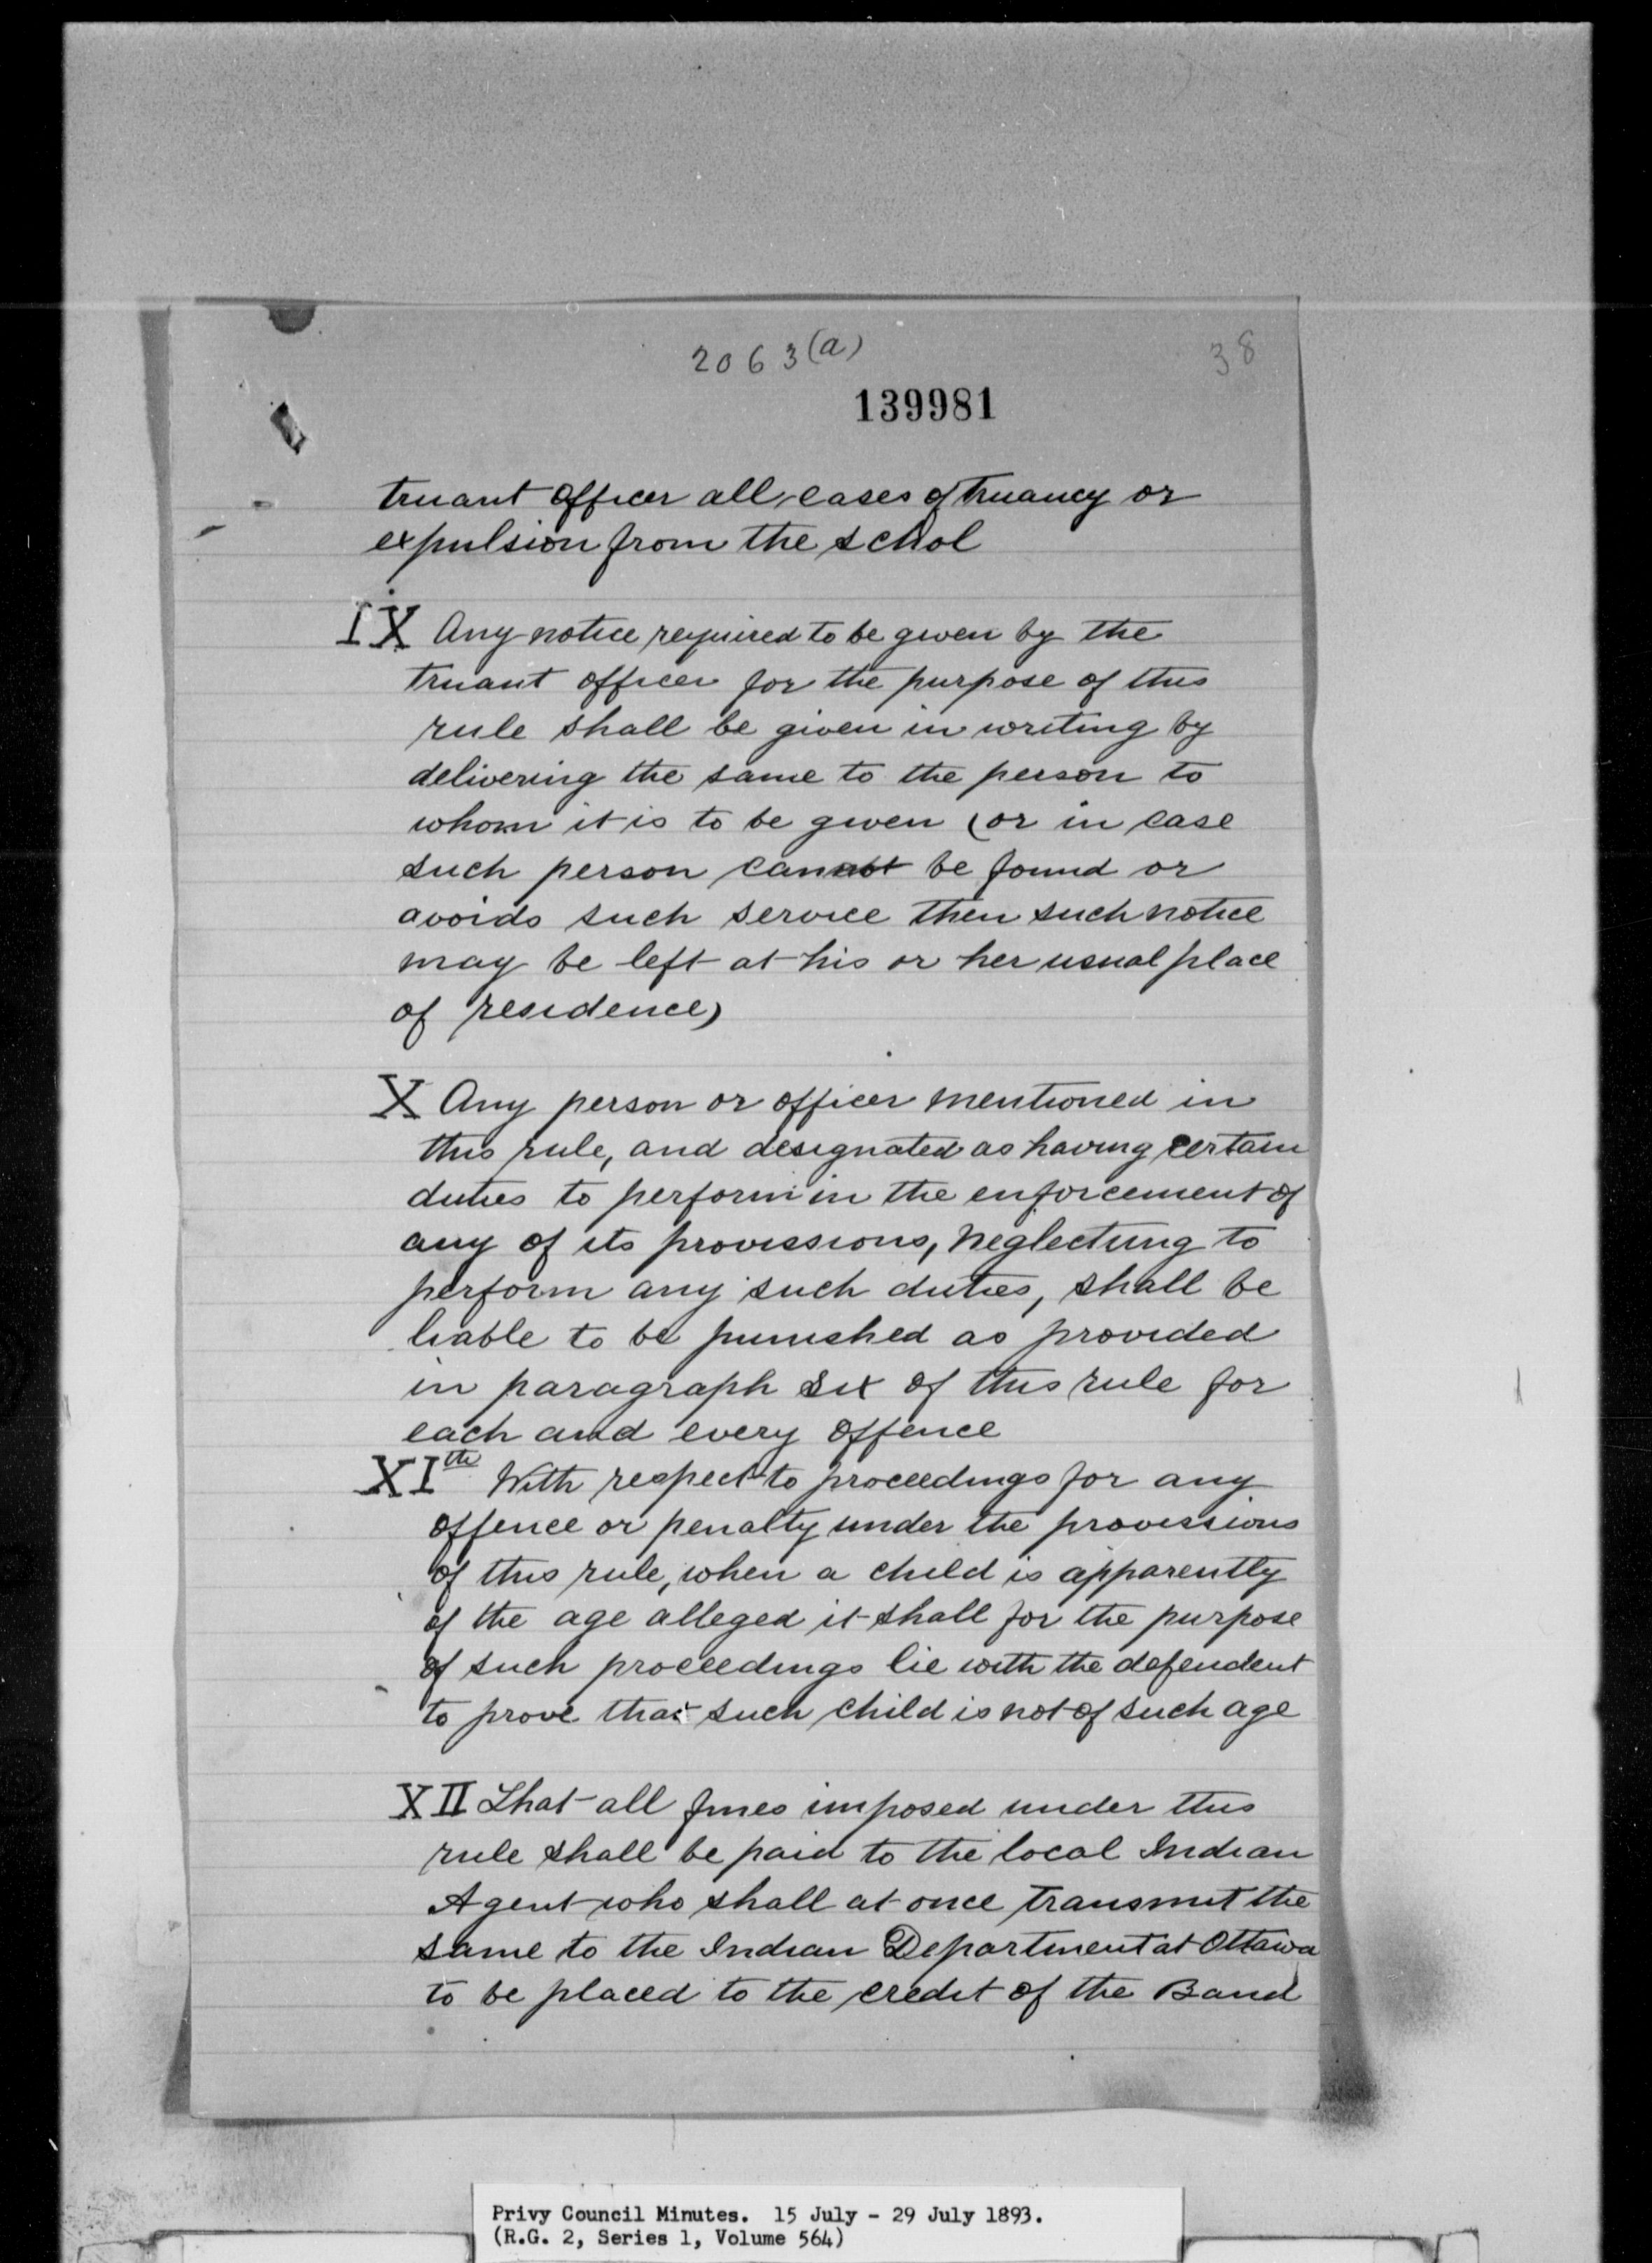 2063(a)
38
139981
truant officer all cases of truancy or
expulsion from the schol
IX Any notice required to be given by the
truant officer for the purpose of this
rule shall be given in writing by
delivering the same to the person to
whom it is to be given (or in case
such person cannot be found or
avoids such service then such notice
may be left at his or her usual place
of residence)
X Any person or officer mentioned in
this rule, and designated as having certain
duties to perform in the enforcement of
any of its provissions, neglecting to
perform any such duties, shall be
liable to be punished as provided
in paragraph six of this rule for
each and every offence
XIth With respect to proceedings for any
offence or penalty under the provissions
of this rule, when a child is apparently
of the age alleged it shall for the purpose
of such proceedings lie with the defendent
to prove that such child is not of such age
XII That all fines imposed under this
rule shall be paid to the local Indian
Agent who shall at once transmit the
same to the Indian Department at Ottawa
to be placed to the credit of the Band
Privy Council Minutes. 15 July - 29 July 1893.
(R.G. 2, Series 1, Volume 564)